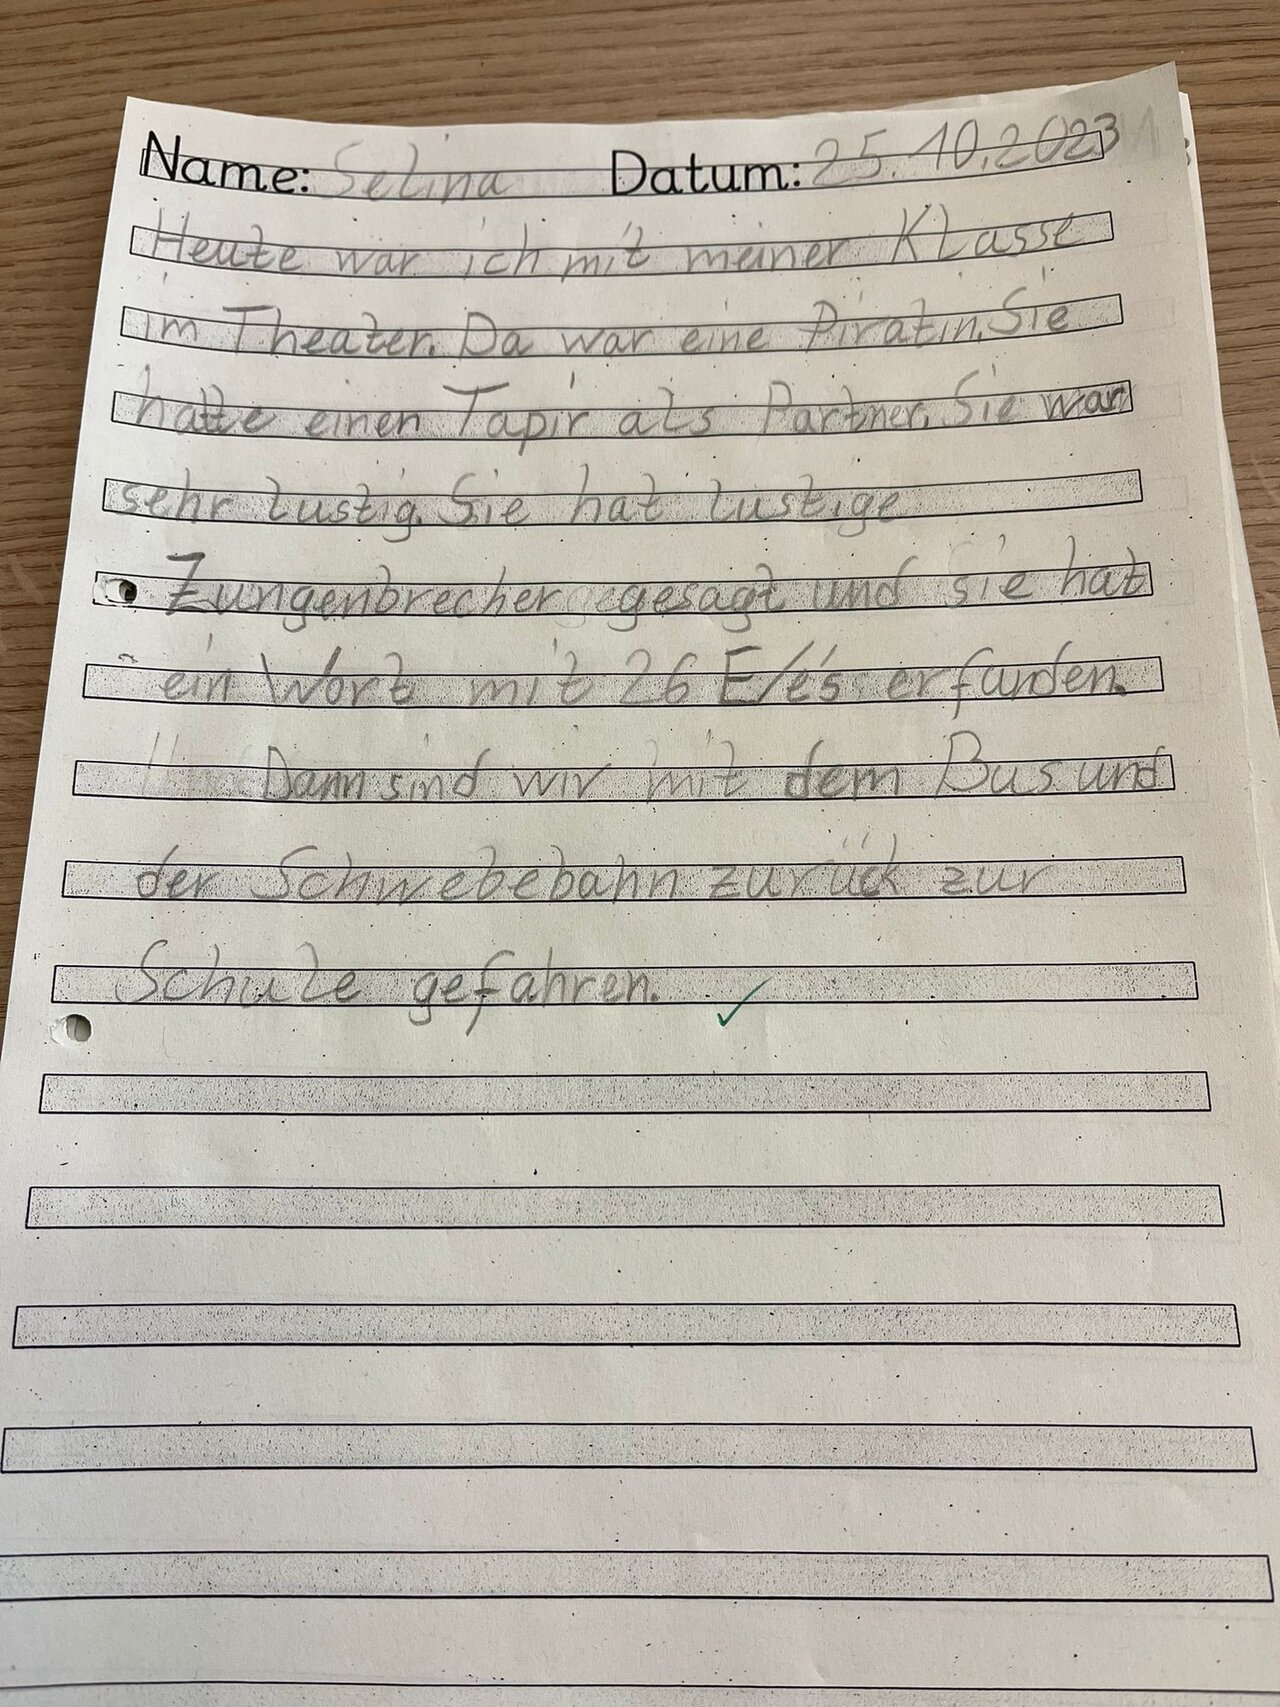 Name: Selina Datum: 25.10.2023
Heute war ich mit meiner Klasse
im Theater. Da war eine Piratin. Sie
hatte einen Tapir als Partner. Sie war
sehr lustig. Sie hat lustige
Zungenbrecher gesagt und sie hat
ein Wort mit 26 E/e's erfunden.
Dann sind wir mit dem Bus und
der Schwebebahn zurück zur
Schule gefahren.